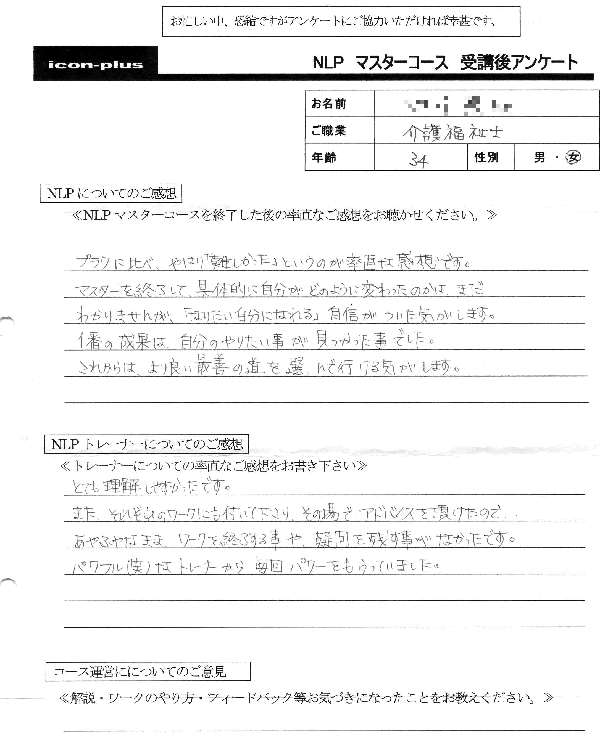 お忙しい中、恐縮ですがアンケートにご協力いただければ幸甚です。
icon-plus
NLP マスターコース 受講後アンケート
お名前
ご職業 介護福祉士
年齢 34 性別 男・女
NLPについてのご感想
≪NLPマスターコースを終了した後の率直なご感想をお聴かせください。≫
プラクに比べ、やはり「難しかった」というのが率直な感想です。
マスターを終了して、具体的に自分がどのように変わったのかは、まだ
わかりませんが、「なりたい自分になれる」自信がついた気がします。
1番の成果は、自分のやりたい事が見つかった事でした。
これからは、より良い最善の道を選んで行ける気がします。
NLPトレーナーについてのご感想
≪トレーナーについての率直なご感想をお書き下さい≫
とても理解しやすかったです。
また、それぞれのワークにも付いて下さり、その場でアドバイスを頂けたので、
あやふやなまま、ワークを終了する事や、疑問を残す事がなかったです。
パワフル(笑)なトレーナーから毎回パワーをもらっていました。
コース運営にについてのご意見
≪解説・ワークのやり方・フィードバック等お気づきになったことをお教えください。≫